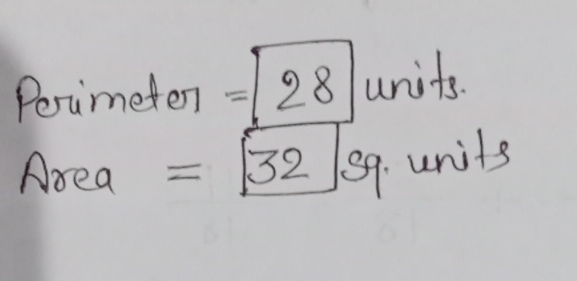 Perimeter = 28 units.
Area = 32 sq. units